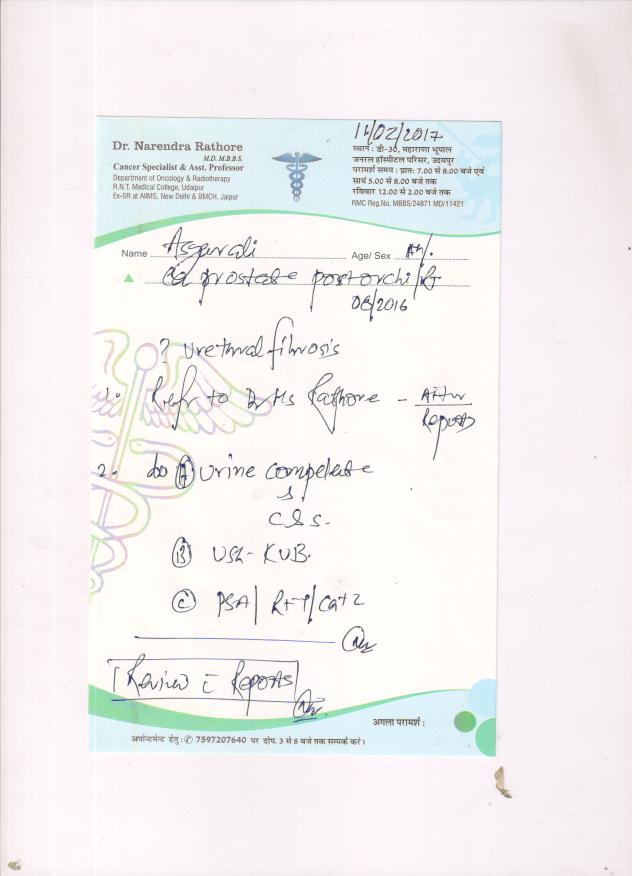 Dr. Narendra Rathore
M.D. M.B.B.S.
Cancer Specialist & Asst. Professor
Department of Oncology & Radiotherapy
R.N.T. Medical College, Udaipur
Ex-SR at AIIMS, New Delhi & BMCH, Jaipur
/02/2017
स्थान : डी-30, महाराणा भूपाल
जनरल हॉस्पीटल परिसर, उदयपुर
परामर्श समय : प्रातः 7.00 से 8.00 बजे एवं
सायं 5.00 से 8.00 बजे तक
रविवार 12.00 से 2.00 बजे तक
RMC Reg.No. MBBS/24871 MD/11421
Name Asgarali Age/ Sex
Ca prostate post orchi/Rt
08/2016
? Urethral fibrosis
1. Refr to Dr Hs Rathore - After Reports
2. do (A) Urine compelete
C&S.
(B) USG- KUB.
(C) PSA/ RFT/ Ca+2
Review c Reports
अगला परामर्श :
अपोन्टमेन्ट हेतु : 7597207640 पर दोप. 3 से 8 बजे तक सम्पर्क करे।